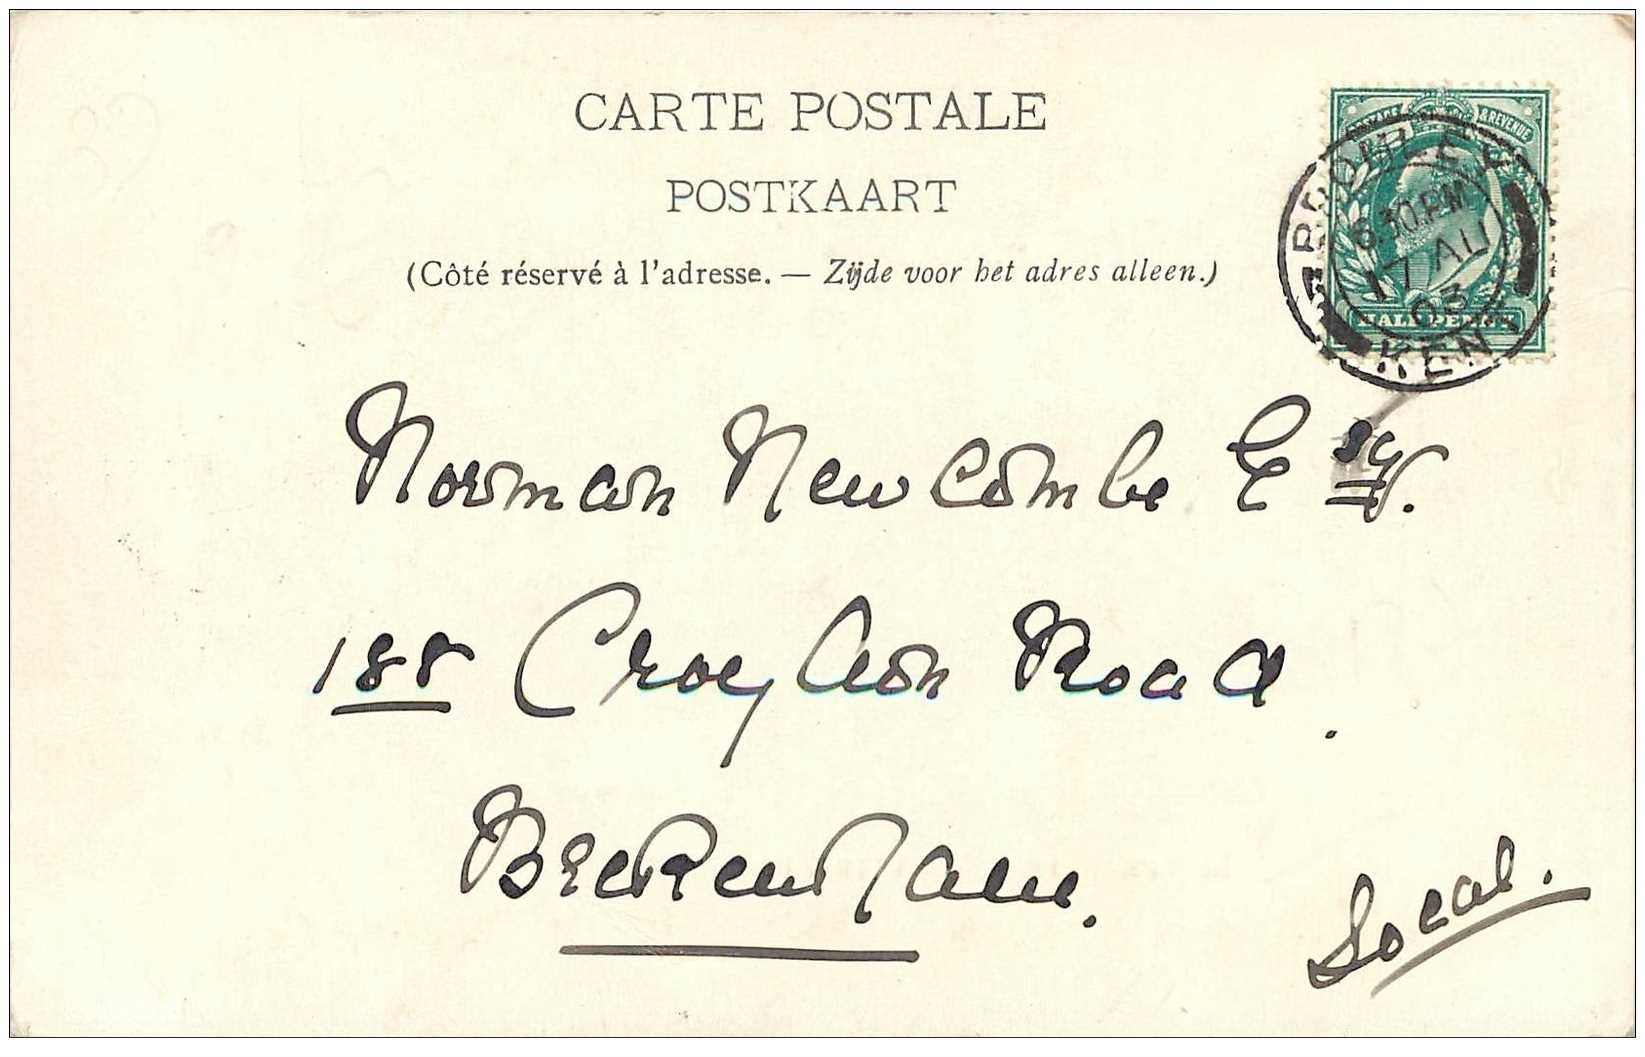 CARTE POSTALE
POSTKAART
(Côté réservé à l'adresse. — Zijde voor het adres alleen.)
POSTAGE & REVENUE
BROMLEY
6.30.PM
17 AU
03
KENT
HALF PENNY
Norman Newcombe Esqr.
188 Croydon Road.
Beckenham.
Local.